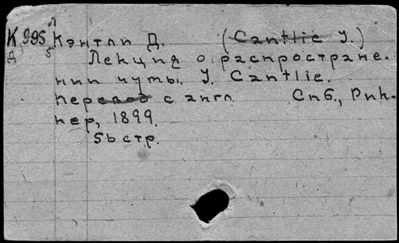 К 995 Л Кэнтли Д. (Cantlie J.)
Д 5 Лекция о распростране-
нии чумы. J. Cantlie.
Перевод с англ. Спб., Рик-
кер, 1899.
56 стр.